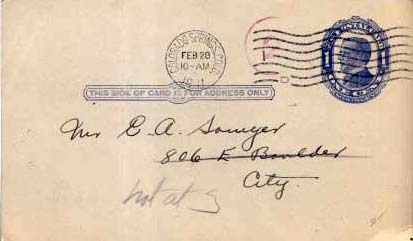 COLORADO SPRINGS, COLO.
FEB 28
10-AM
1911
D
THIS SIDE OF CARD IS FOR ADDRESS ONLY
Mr E. A. Sawyer
806 E Boulder
City.
not at